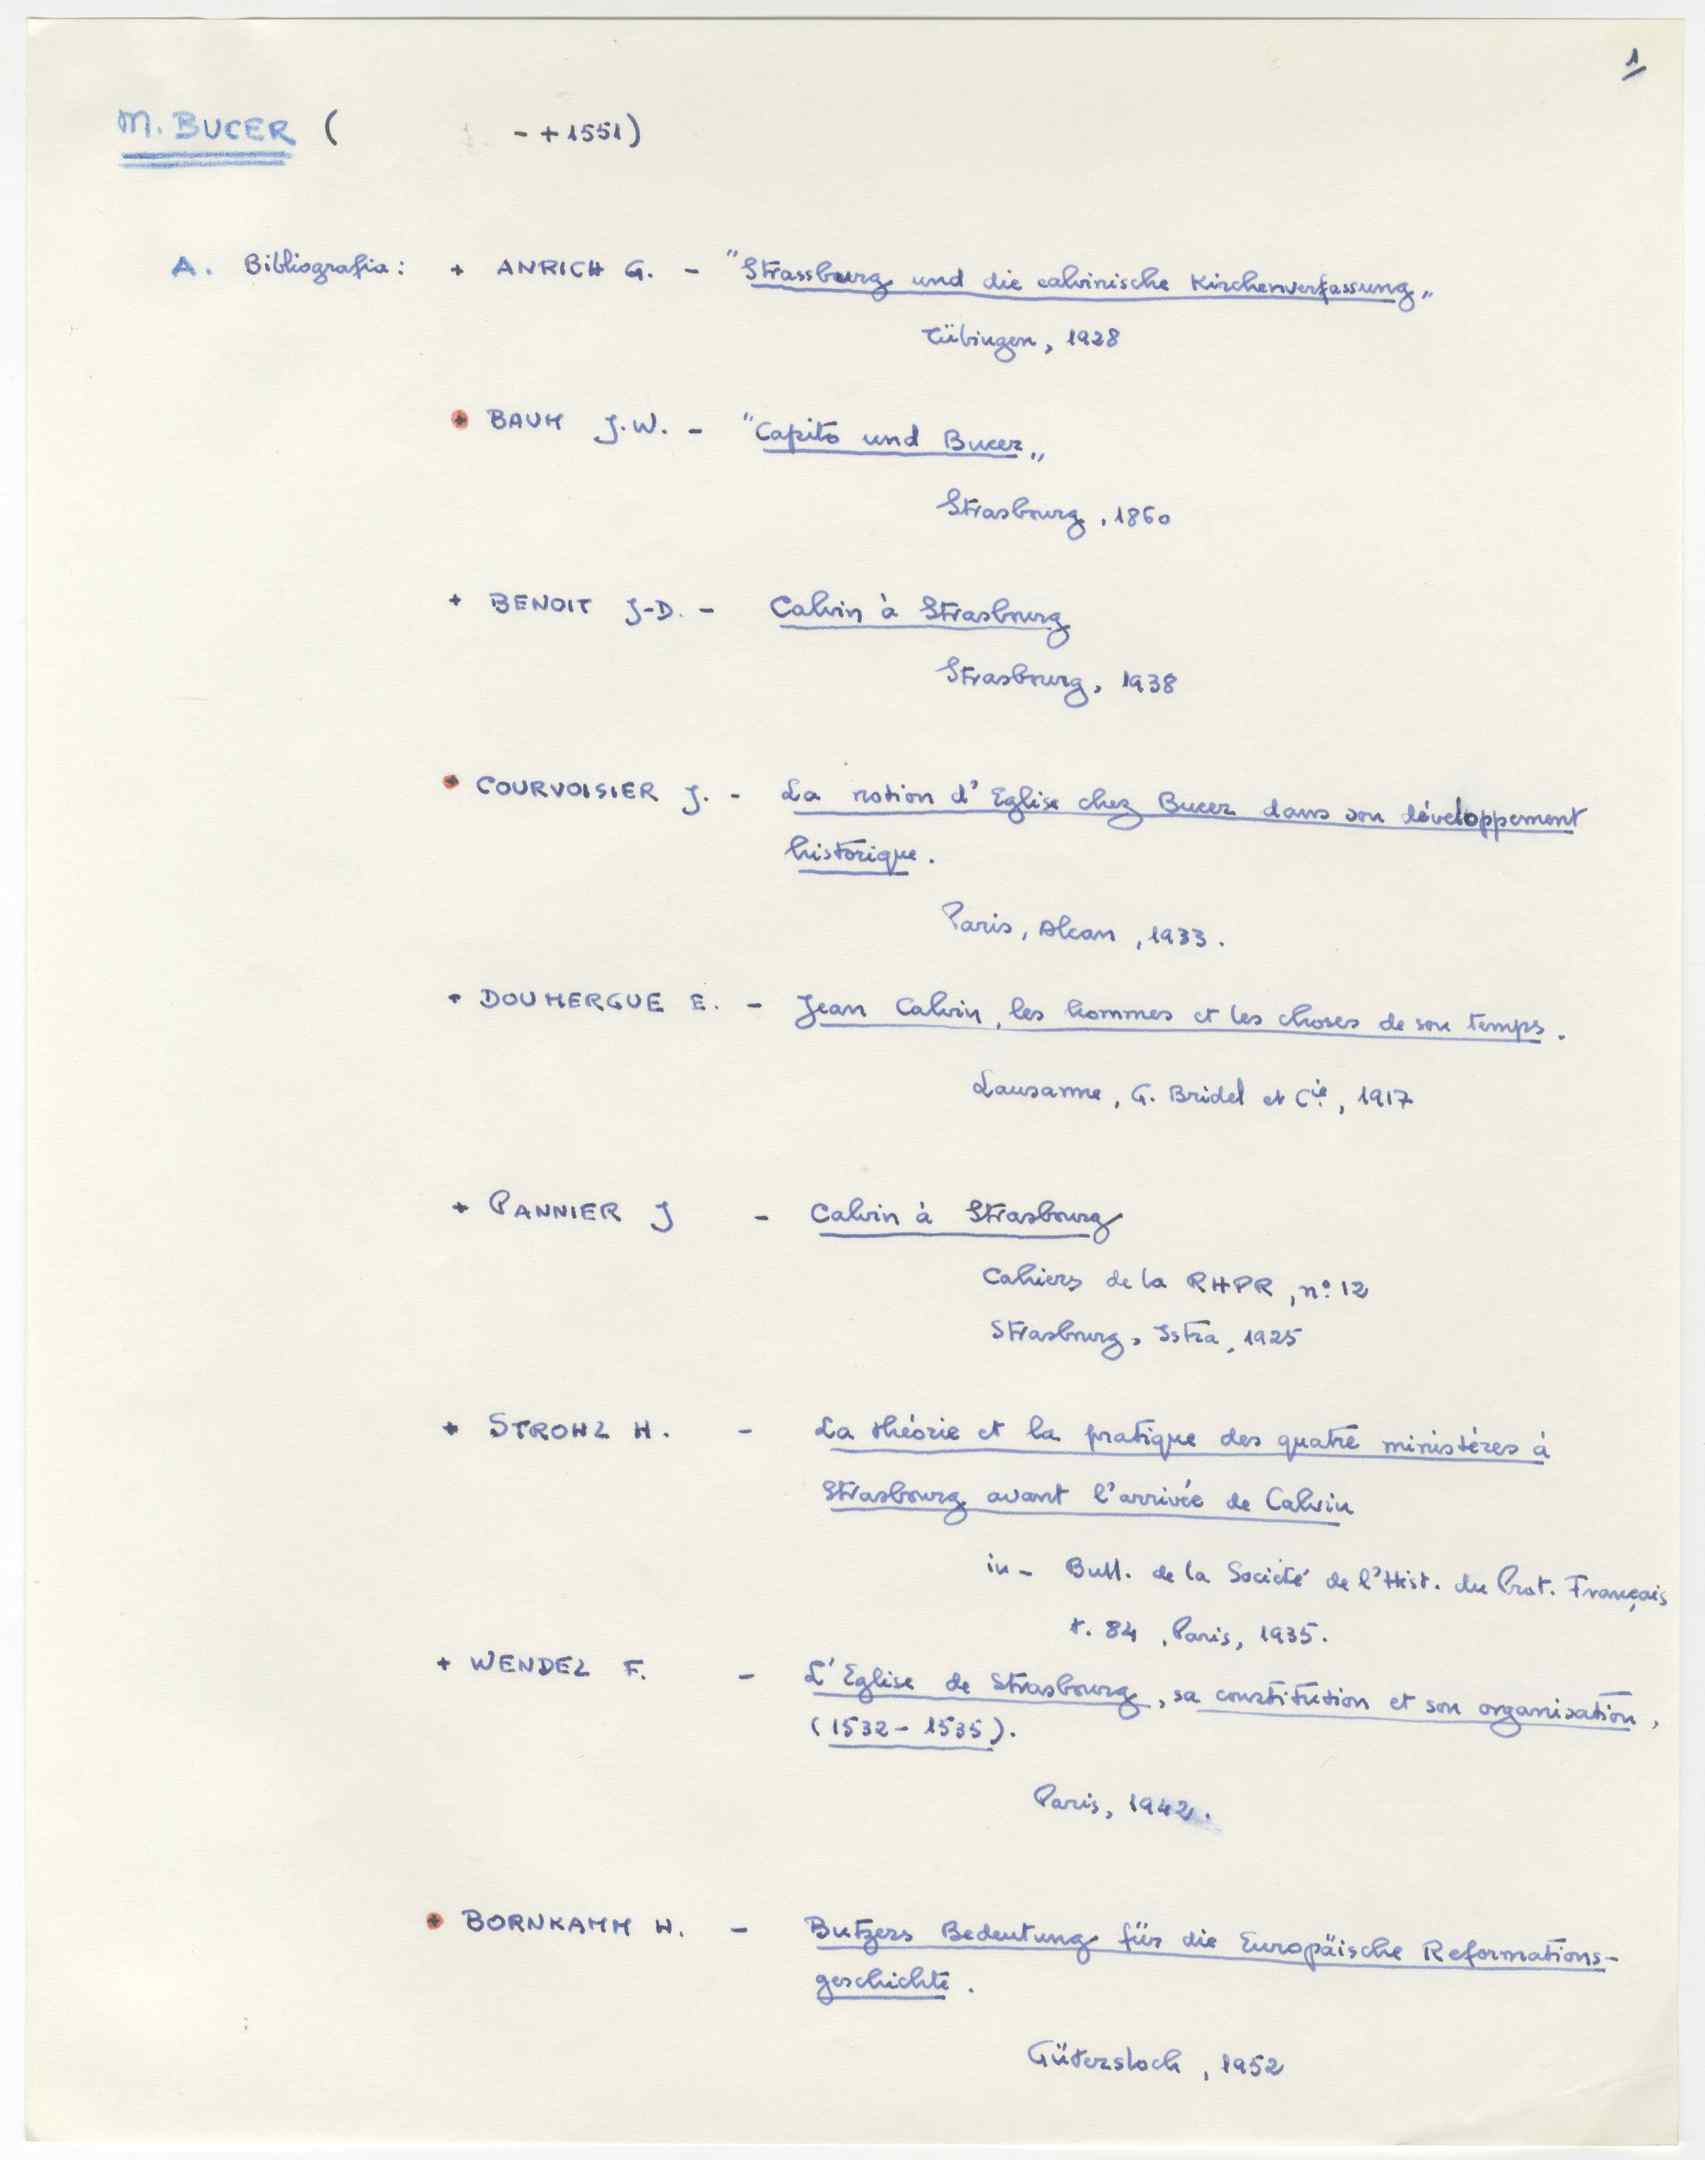 1
M. BUCER ( - + 1551)
A. Bibliografia: + ANRICH G. - "Strassburg und die calvinische Kirchenverfassung„
Tübingen, 1928
+ BAUM J.W. - "Capito und Bucer„
Strasbourg, 1860
+ BENOIT J-D. - Calvin à Strasbourg
Strasbourg, 1938
+ COURVOISIER J. - La notion d'Eglise chez Bucer dans son développement
historique.
Paris, Alcan, 1933.
+ DOUMERGUE E. - Jean Calvin, les hommes et les choses de son temps.
Lausanne, G. Bridel et Cie, 1917
+ PANNIER J - Calvin à Strasbourg
Cahiers de la RHPR, n° 12
Strasbourg, Istra, 1925
+ STROHL H. - La théorie et la pratique des quatre ministères à
Strasbourg avant l'arrivée de Calvin
in - Bull. de la Société de l'Hist. du Prot. Français
t. 84, Paris, 1935.
+ WENDEL F. - L'Eglise de Strasbourg, sa constitution et son organisation,
(1532 - 1535).
Paris, 1942.
+ BORNKAMM H. - Butzers Bedeutung für die Europäische Reformations-
geschichte.
Gütersloch, 1952